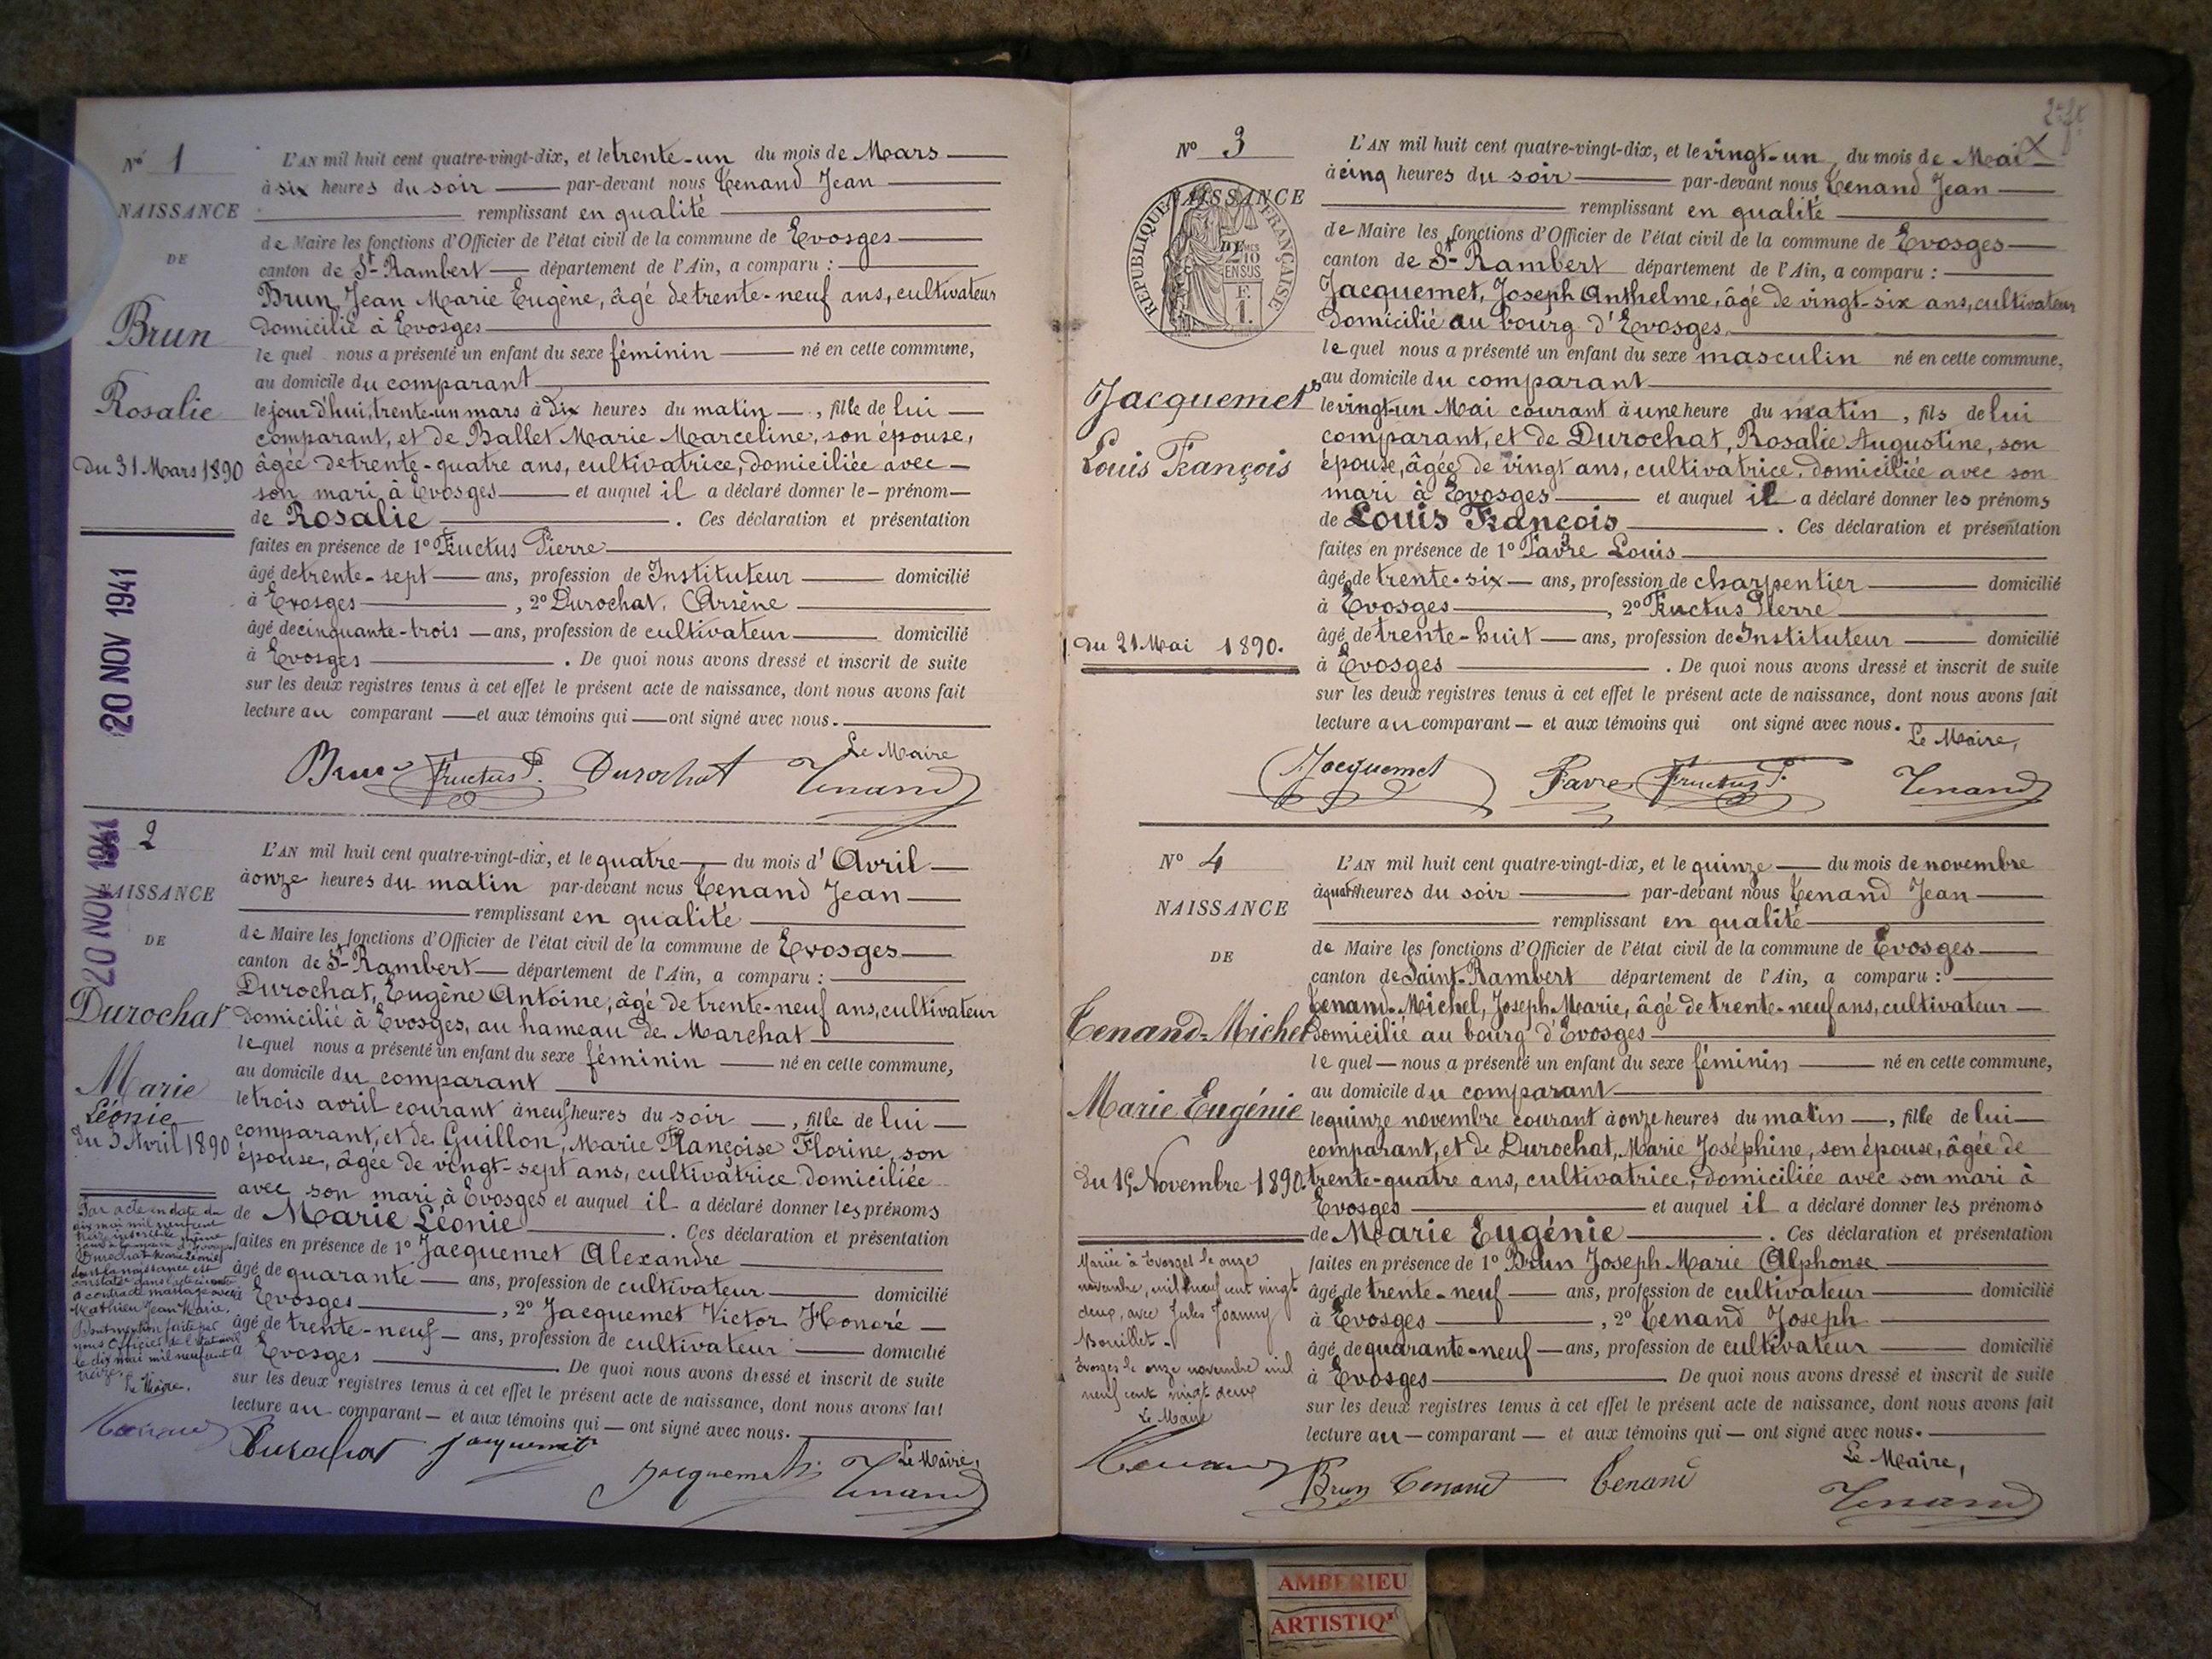 N° 1
NAISSANCE
DE
Brun
Rosalie
du 31 Mars 1890
20 NOV 1941
L'AN mil huit cent quatre-vingt-dix, et le trente-un du mois de Mars
à six heures du soir par-devant nous Tenand Jean
remplissant en qualité
de Maire les fonctions d'Officier de l'état civil de la commune de Evosges
canton de St-Rambert département de l'Ain, a comparu :
Brun, Jean Marie Eugène, âgé de trente-neuf ans, cultivateur
domicilié à Evosges
lequel nous a présenté un enfant du sexe féminin né en cette commune,
au domicile du comparant
le jour d'hui, trente-un mars à dix heures du matin, fille de lui
comparant, et de Ballet Marie Marceline, son épouse,
âgée de trente-quatre ans, cultivatrice, domiciliée avec
son mari à Evosges et auquel il a déclaré donner le prénom
de Rosalie. Ces déclaration et présentation
faites en présence de 1° Fructus Pierre
âgé de trente-sept ans, profession de Instituteur domicilié
à Evosges, 2° Durochat, Arsène
âgé de cinquante-trois ans, profession de cultivateur domicilié
à Evosges. De quoi nous avons dressé et inscrit de suite
sur les deux registres tenus à cet effet le présent acte de naissance, dont nous avons fait
lecture au comparant et aux témoins qui ont signé avec nous.
Le Maire
Brun Fructus P. Durochat Tenand
2
NAISSANCE
DE
20 NOV 1941
Durochat
Marie
Léonie
du 3 Avril 1890
Par acte en date du
dix mai mil neuf cent
treize inscrit le même
jour à la mairie d'Evosges
Durochat Marie Léonie
dont la naissance est
constatée dans l'acte ci-contre
a contracté mariage avec
Mathieu Jean Marie.
Dont mention faite par
nous Officier de l'état civil
le dix mai mil neuf cent
treize.
Le Maire,
Tenand
L'AN mil huit cent quatre-vingt-dix, et le quatre du mois d'Avril
à onze heures du matin par-devant nous Tenand Jean
remplissant en qualité
de Maire les fonctions d'Officier de l'état civil de la commune de Evosges
canton de St-Rambert département de l'Ain, a comparu :
Durochat, Eugène Antoine, âgé de trente-neuf ans, cultivateur
domicilié à Evosges, au hameau de Marchat
lequel nous a présenté un enfant du sexe féminin né en cette commune,
au domicile du comparant
le trois avril courant à neuf heures du soir, fille de lui
comparant, et de Guillon, Marie Françoise Florine, son
épouse, âgée de vingt-sept ans, cultivatrice domiciliée
avec son mari à Evosges et auquel il a déclaré donner les prénoms
de Marie Léonie. Ces déclaration et présentation
faites en présence de 1° Jacquemet Alexandre
âgé de quarante ans, profession de cultivateur domicilié
à Evosges, 2° Jacquemet Victor Honoré
âgé de trente-neuf ans, profession de cultivateur domicilié
à Evosges De quoi nous avons dressé et inscrit de suite
sur les deux registres tenus à cet effet le présent acte de naissance, dont nous avons fait
lecture au comparant et aux témoins qui ont signé avec nous.
Le Maire,
Durochat Jacquemet Jacquemet Tenand
N° 3
NAISSANCE
DE
REPUBLIQUE FRANÇAISE
2/10
EN SUS
F.
1.
Jacquemet
Louis François
du 21 Mai 1890.
L'AN mil huit cent quatre-vingt-dix, et le vingt-un du mois de Mai
à cinq heures du soir par-devant nous Tenand Jean
remplissant en qualité
de Maire les fonctions d'Officier de l'état civil de la commune de Evosges
canton de St-Rambert département de l'Ain, a comparu :
Jacquemet, Joseph Anthelme, âgé de vingt-six ans, cultivateur
domicilié au bourg d'Evosges,
lequel nous a présenté un enfant du sexe masculin né en cette commune,
au domicile du comparant
le vingt-un Mai courant à une heure du matin, fils de lui
comparant, et de Durochat, Rosalie Augustine, son
épouse, âgée de vingt ans, cultivatrice, domiciliée avec son
mari à Evosges et auquel il a déclaré donner les prénoms
de Louis François. Ces déclaration et présentation
faites en présence de 1° Favre Louis
âgé de trente-six ans, profession de charpentier domicilié
à Evosges, 2° Fructus Pierre
âgé de trente-huit ans, profession de Instituteur domicilié
à Evosges. De quoi nous avons dressé et inscrit de suite
sur les deux registres tenus à cet effet le présent acte de naissance, dont nous avons fait
lecture au comparant et aux témoins qui ont signé avec nous.
Le Maire,
Jacquemet Favre Fructus P. Tenand
N° 4
NAISSANCE
DE
Tenand-Michel
Marie Eugénie
du 15 Novembre 1890.
Mariée à Evosges le onze
novembre, mil neuf cent vingt
deux, avec Jules Joanny
Bouillet.
Evosges le onze novembre mil
neuf cent vingt deux
Le Maire
Tenand
L'AN mil huit cent quatre-vingt-dix, et le quinze du mois de novembre
à quatre heures du soir par-devant nous Tenand Jean
remplissant en qualité
de Maire les fonctions d'Officier de l'état civil de la commune de Evosges
canton de Saint-Rambert département de l'Ain, a comparu :
Tenand-Michel, Joseph-Marie, âgé de trente-neuf ans, cultivateur
domicilié au bourg d'Evosges
lequel nous a présenté un enfant du sexe féminin né en cette commune,
au domicile du comparant
le quinze novembre courant à onze heures du matin, fille de lui
comparant, et de Durochat, Marie Joséphine, son épouse, âgée de
trente-quatre ans, cultivatrice, domiciliée avec son mari à
Evosges et auquel il a déclaré donner les prénoms
de Marie Eugénie. Ces déclaration et présentation
faites en présence de 1° Brun Joseph Marie Alphonse
âgé de trente-neuf ans, profession de cultivateur domicilié
à Evosges, 2° Tenand Joseph
âgé de quarante-neuf ans, profession de cultivateur domicilié
à Evosges De quoi nous avons dressé et inscrit de suite
sur les deux registres tenus à cet effet le présent acte de naissance, dont nous avons fait
lecture au comparant et aux témoins qui ont signé avec nous.
Le Maire,
Brun Tenand Tenand Tenand
AMBERIEU
ARTISTIQ